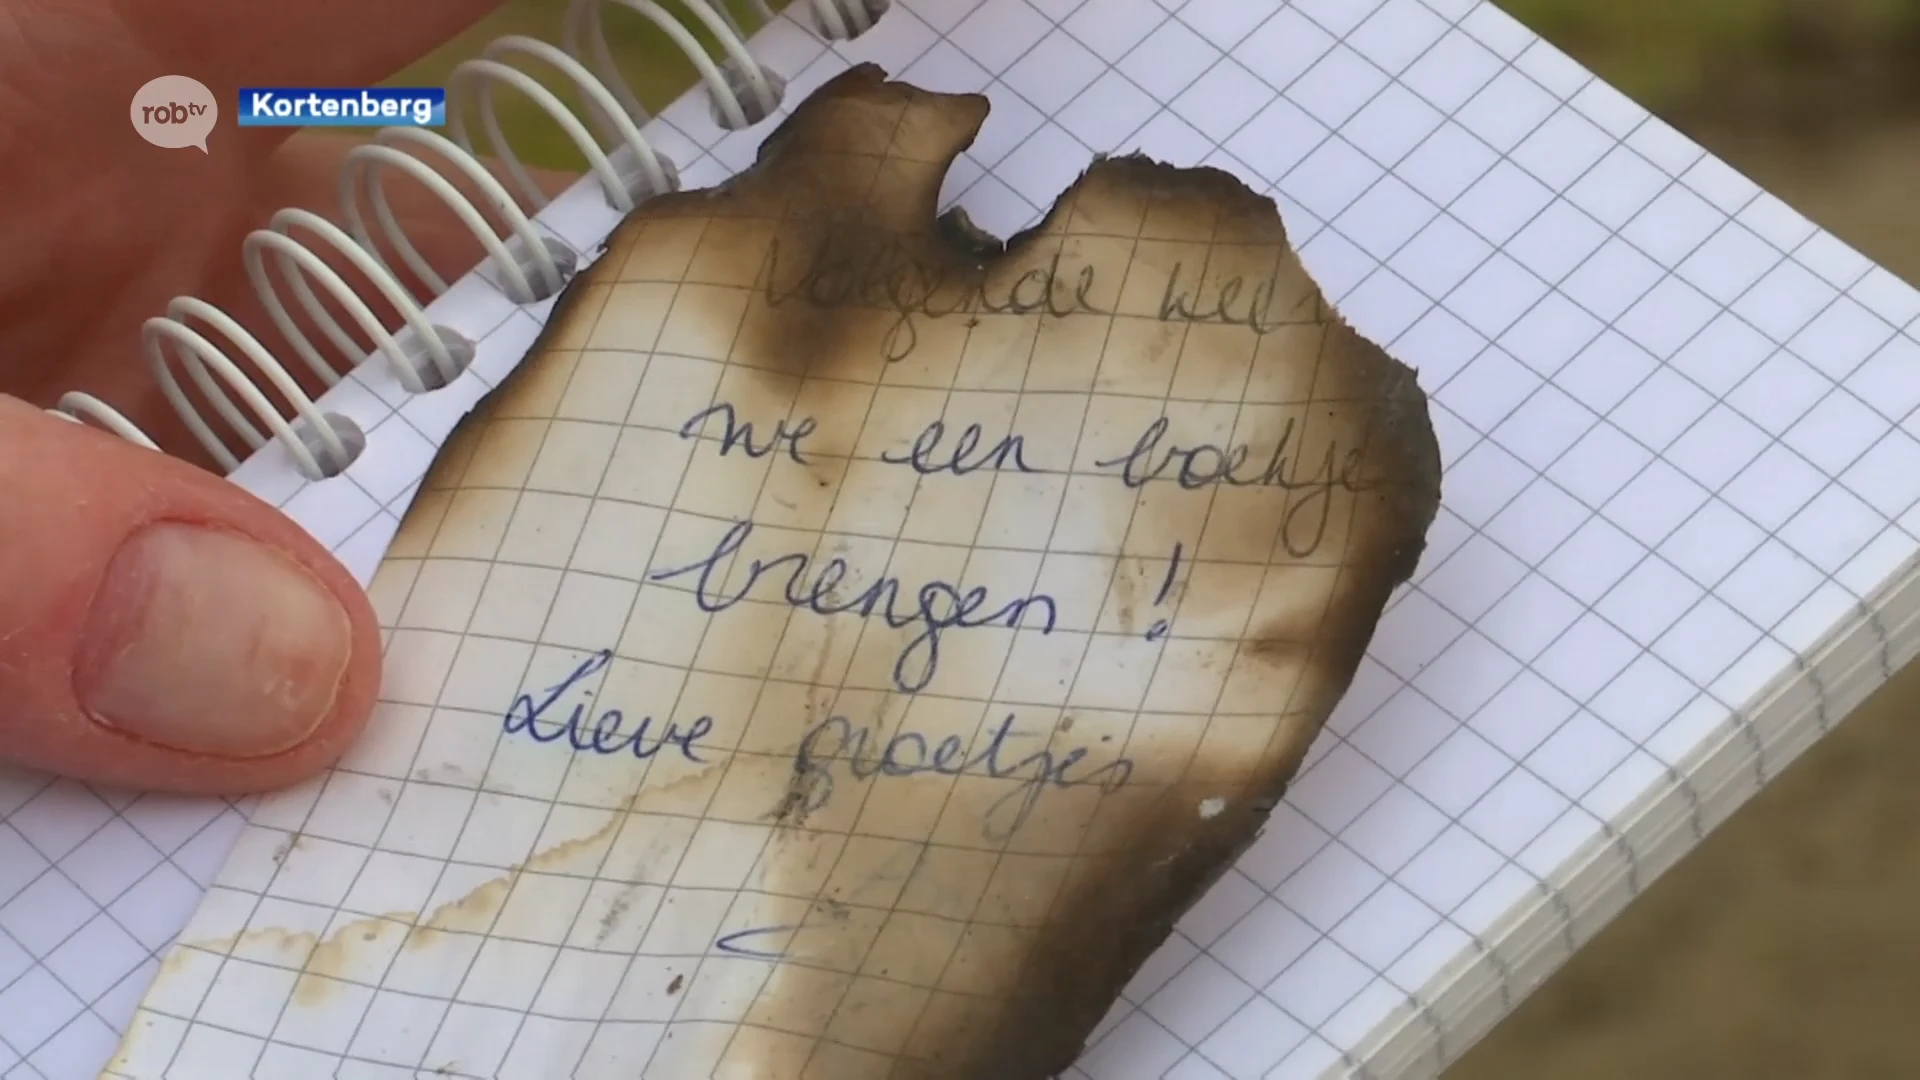 robtv
Kortenberg
Volgende keer
we een boekje
brengen !
Lieve groetjes